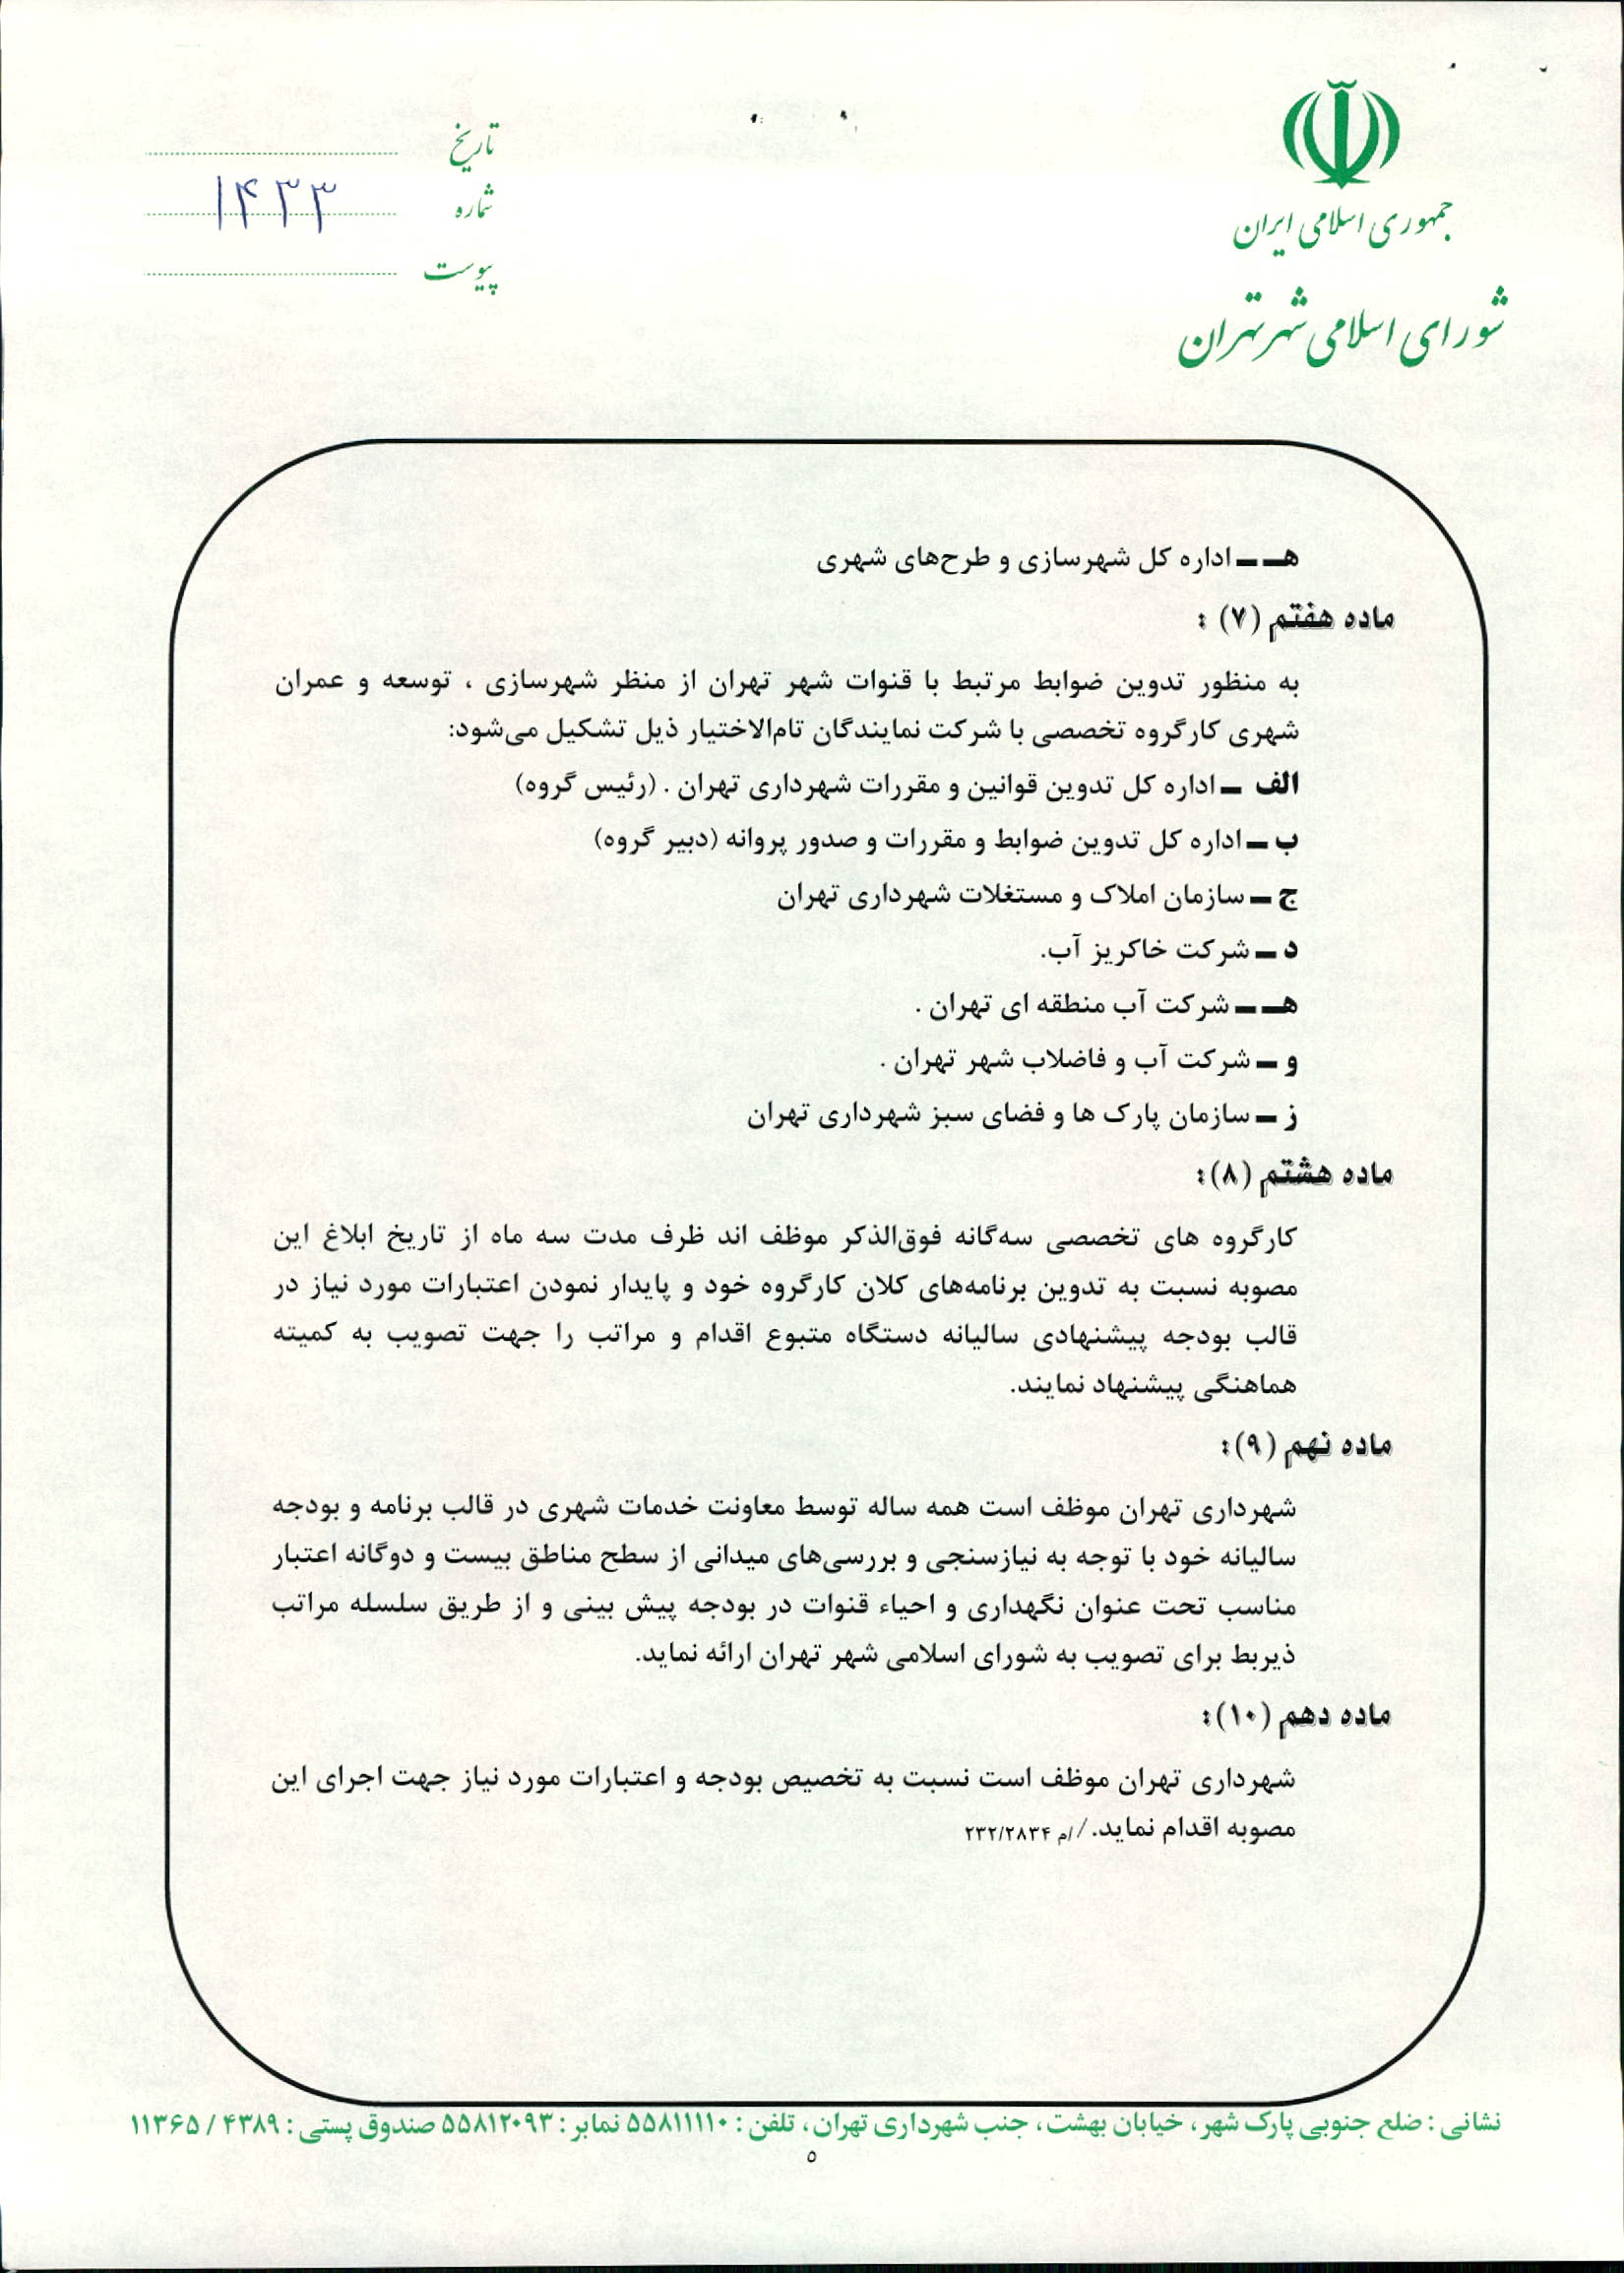 جمهوری اسلامی ایران
شورای اسلامی شهر تهران
تاریخ
شماره ۱۴۳۳
پیوست
هـ ـ اداره کل شهرسازی و طرح‌های شهری
ماده هفتم (۷) :
به منظور تدوین ضوابط مرتبط با قنوات شهر تهران از منظر شهرسازی ، توسعه و عمران
شهری کارگروه تخصصی با شرکت نمایندگان تام‌الاختیار ذیل تشکیل می‌شود:
الف ـ اداره کل تدوین قوانین و مقررات شهرداری تهران . (رئیس گروه)
ب ـ اداره کل تدوین ضوابط و مقررات و صدور پروانه (دبیر گروه)
ج ـ سازمان املاک و مستغلات شهرداری تهران
د ـ شرکت خاکریز آب.
هـ ـ شرکت آب منطقه ای تهران .
و ـ شرکت آب و فاضلاب شهر تهران .
ز ـ سازمان پارک ها و فضای سبز شهرداری تهران
ماده هشتم (۸):
کارگروه های تخصصی سه‌گانه فوق‌الذکر موظف اند ظرف مدت سه ماه از تاریخ ابلاغ این
مصوبه نسبت به تدوین برنامه‌های کلان کارگروه خود و پایدار نمودن اعتبارات مورد نیاز در
قالب بودجه پیشنهادی سالیانه دستگاه متبوع اقدام و مراتب را جهت تصویب به کمیته
هماهنگی پیشنهاد نمایند.
ماده نهم (۹):
شهرداری تهران موظف است همه ساله توسط معاونت خدمات شهری در قالب برنامه و بودجه
سالیانه خود با توجه به نیازسنجی و بررسی‌های میدانی از سطح مناطق بیست و دوگانه اعتبار
مناسب تحت عنوان نگهداری و احیاء قنوات در بودجه پیش بینی و از طریق سلسله مراتب
ذیربط برای تصویب به شورای اسلامی شهر تهران ارائه نماید.
ماده دهم (۱۰):
شهرداری تهران موظف است نسبت به تخصیص بودجه و اعتبارات مورد نیاز جهت اجرای این
مصوبه اقدام نماید. //م ۲۳۲/۲۸۳۴
نشانی : ضلع جنوبی پارک شهر، خیابان بهشت، جنب شهرداری تهران، تلفن : ۵۵۸۱۱۱۱۰ نمابر : ۵۵۸۱۲۰۹۳ صندوق پستی : ۴۳۸۹ / ۱۱۳۶۵
۵